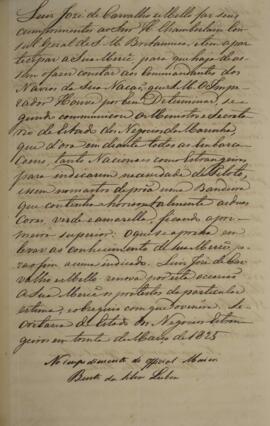 Luiz José de Carvalho e Mello faz seus
cumprimentos ao Senr. H. Chamberlain Con
sul Geral de S. M. Britannica, e tem a par
ticipar a Sua Mercê, para que haja de as
sim o fazer constar aos Commandantes dos
Navios de Sua Nação, que S. M. O Impe
rador Houve por bem Determinar, se
gundo communicou o Ministro e Secreta
rio de Estado dos Negocios da Marinha,
que d'ora em diante todas as Embarca
ções, tanto Nacionaes como Estrangeiras
para indicarem necessidade de Piloto,
issem no mastro de prôa uma Bandeira
que contenha horisontalmente as duas
Cores verde e amarella, ficando a pri
meira superior: o que se apressa em
levar ao conhecimento de Sua Mercê
para o fim acima indicado. Luiz José de Car
valho e Mello renova por esta occasião
a Sua Mercê os protestos de particular
estima, e obsequio com que o venéra. Se
cretaria de Estado dos Negocios Estran
geiros em trinta de Março de 1825
No impedimento do Official Maior
Bento da Silva Lisboa